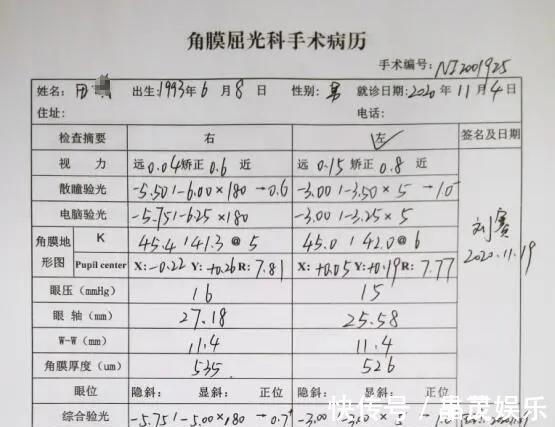 角膜屈光科手术病历
手术编号: NJ2001925
姓名: 田 出生: 1993年 6 月 8 日 性别: 男 就诊日期: 2020年 11月 4日
住址: 电话:
检查摘要 右 左 签名及日期
视 力 远 0.04 矫正 0.6 近 远 0.15 矫正 0.8 近
散瞳验光 -5.50/-6.00×180→0.6 -3.00/-3.50×5→1.0
电脑验光 -5.75/-6.25×180 -3.00/-3.25×5
角膜地形图 K 45.4/41.3@5 45.0/42.0@6
Pupil center X:-0.22 Y:+0.26 R:7.81 X:+0.05 Y:+0.19 R:7.77
刘赛
2020.11.19
眼压(mmHg) 16 15
眼 轴(mm) 27.18 25.58
W-W(mm) 11.4 11.4
角膜厚度(um) 535 526
眼位 隐斜: 显斜: 正位 隐斜: 显斜: 正位
综合验光 -5.75/-5.00×180→0.7 -3.00
快传号/星灵娱乐